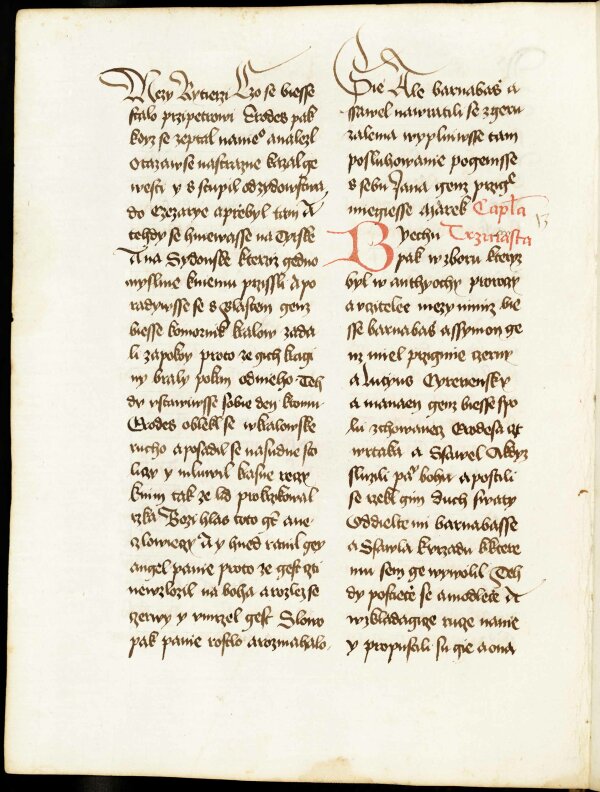 Mezy Rytierzi Czo se biesse
stalo przipetrowi Erodes pak
kdyz se zeptal naneho analezl
Otazaw se nastrazne kazal ge
westi y sstupil odzydowstwa
do Cezarye apřebyl tam A
tehdy se hniewasse na Tyrske
A na Sydonske kterziz gedno
myslnie kniemu przissli Apo
radywsse se s Blastem genz
biesse komornik kralow zada
li zapokoy proto ze gich kragi
ny braly pokrm odnieho Teh
dy vstawiwsse sobie den ktomu
Erodes oblekl se wkralowske
rucho aposadil se nasudne sto
lici y mluwil kasne rzeczi
knim tak ze lid prowolawal
rzka Bozi hlas toto gest ane
czlowieczi A y hned ranil gey
angel panie proto ze gest cti
newzlozil na boha arozlez se
czerwy y vmrzel gest Slowo
pak panie rostlo arozmahalo
Sie Ale barnabas a
ssawel nawratili se zgeru
zalema wyplniwsse tam
posluhowanie pogemsse
s sebu Jana genz przigl
miegiesse Marek Capla
13
Bychu Trzinasta
pak wzboru kteryz
byl w anthyochy prorocy
a vczitelee mezy nimiz bie
sse barnabas assymon ge
nz miel przigmie czerny
a lucius Cyrenensky
a manaen genz biesse spo
lu zchowanecz Erodesa czt
wrtaka a Ssawel A kdyz
sluzili panu bohu apostili
se rzekl gim duch swaty
Oddielte mi barnabasse
a Ssawla kurzadu kktere
mu sem ge wywolil Teh
dy postiece se amodlece A
wzkladagicze rucze nanie
y propustili su gie aona